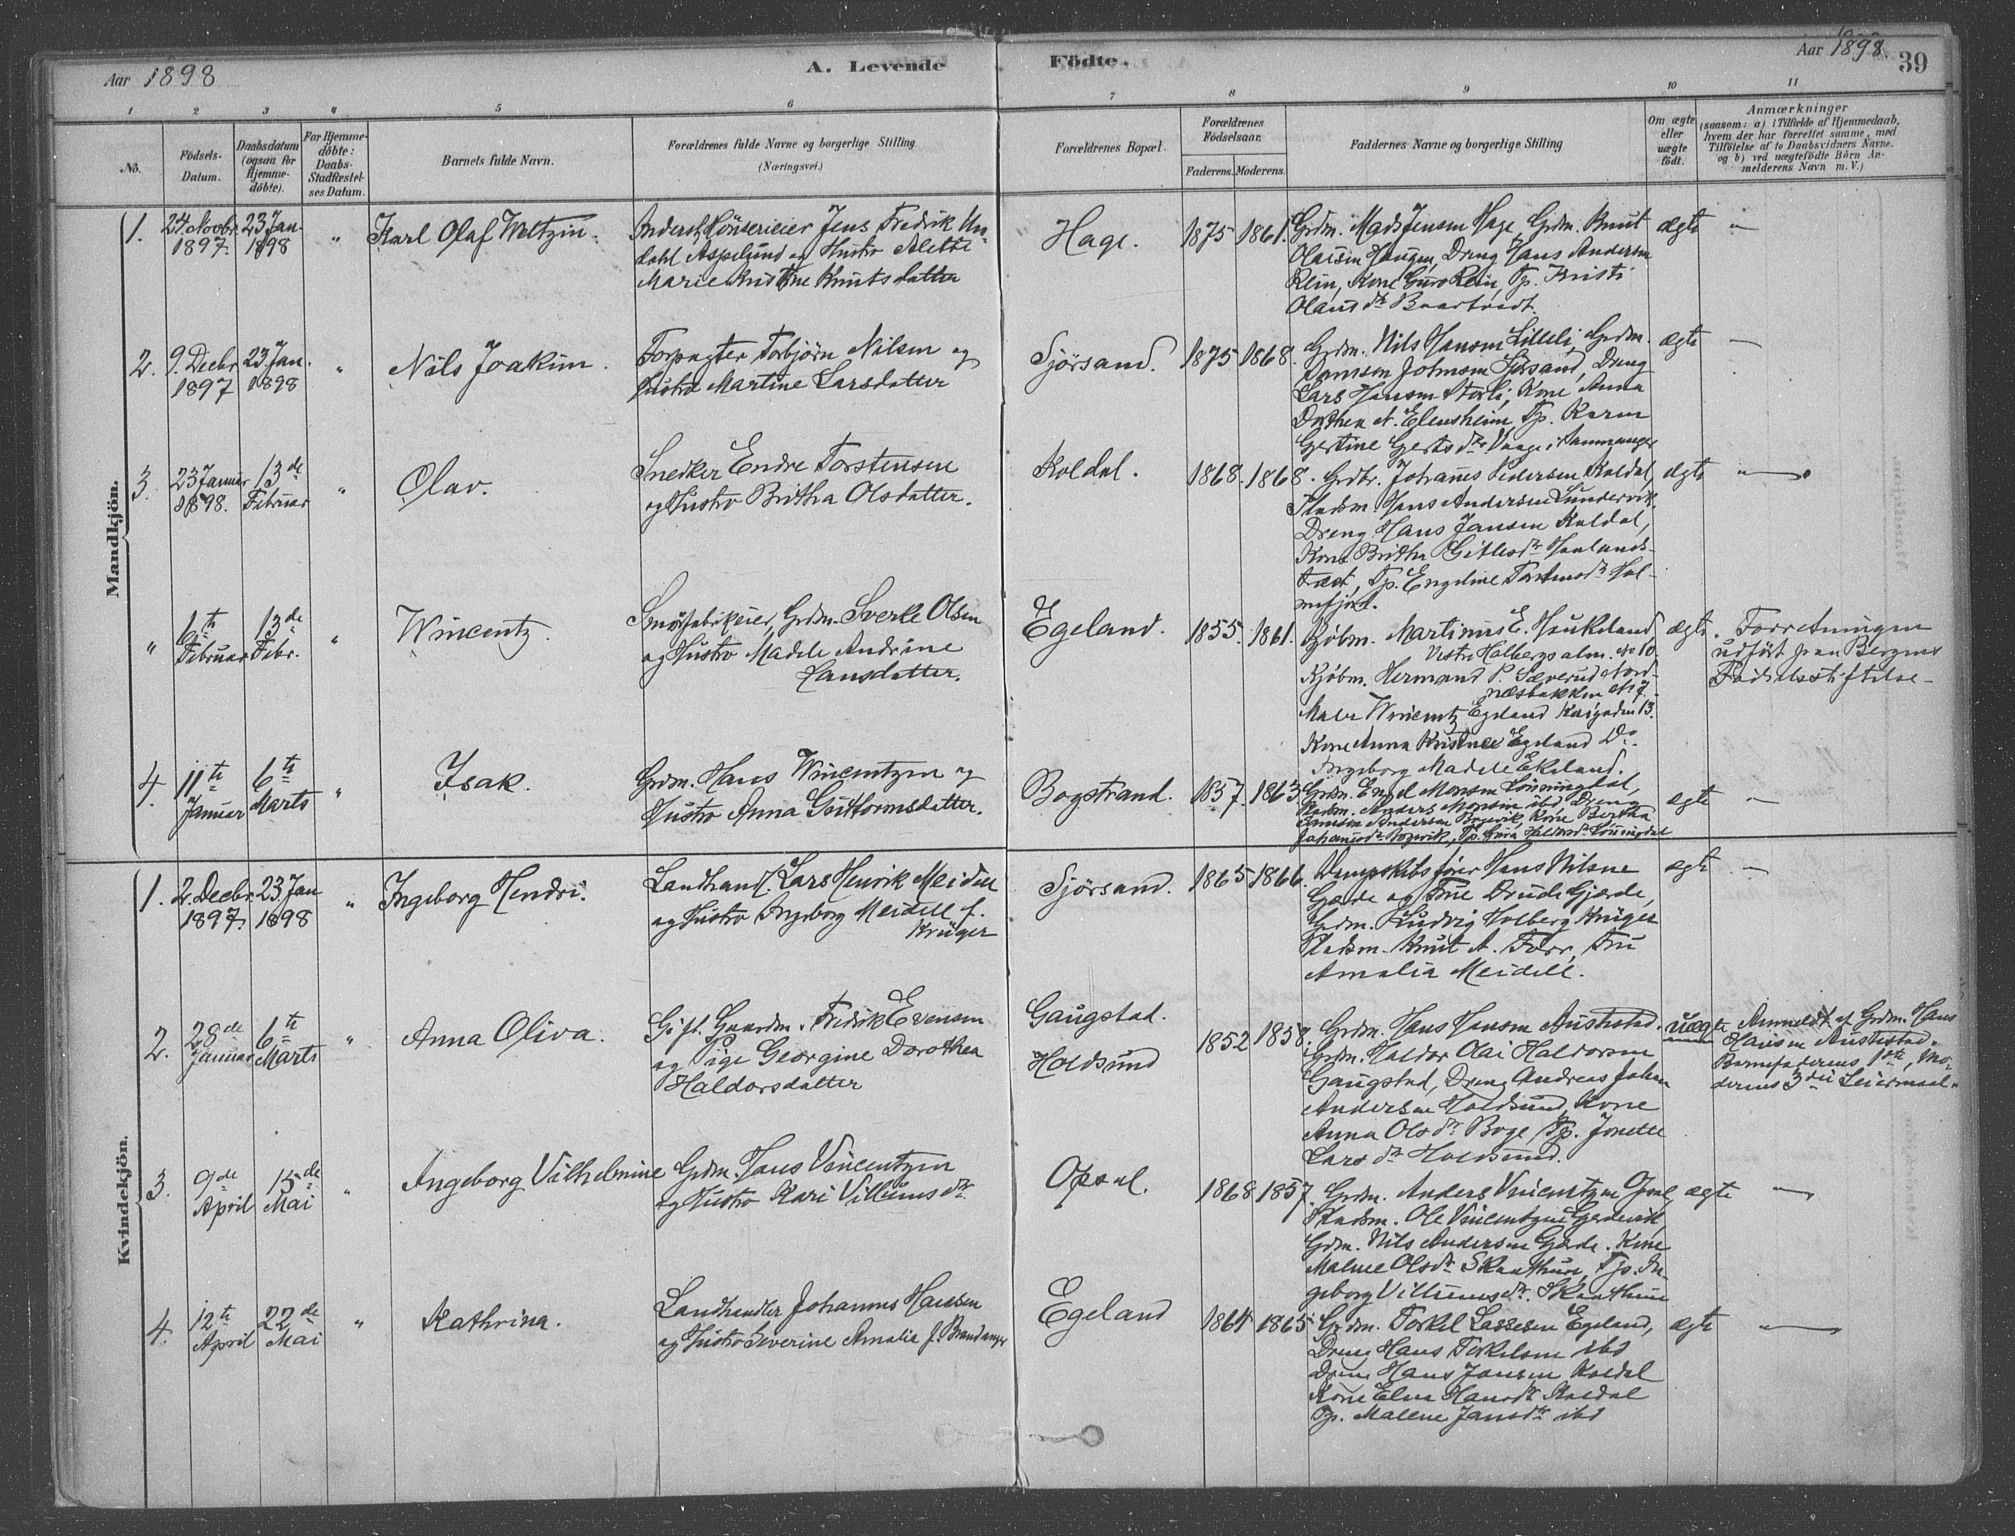 Aar 1898
A. Levende Födte.
Aar 1898. 39
1 2 3 4 5 6 7 8 9 10 11
No.
Födsels-
Datum.
Daabsdatum
(ogsaa for
Hjemme-
döbte).
For Hjemme-
döbte:
Daabs-
Stadfæstel-
ses Datum.
Barnets fulde Navn.
Forældrenes fulde Navne og borgerlige Stilling
(Næringsvei.)
Forældrenes Bopæl.
Forældrenes
Födselsaar.
Faderens. Moderens.
Faddernes Navne og borgerlige Stilling
Om ægte
eller
uægte
födt.
Anmærkninger
(saasom: a) i Tilfælde af Hjemmedaab,
hvem der har forrettet samme, med
Tilföielse af to Daabsvidners Navne.
og b) ved uægtefödte Börn An-
melderens Navn m. V.)
Mandkjön.
1. 24. Novbr. 1897. 23 Jan. 1898 " Karl Olaf
Jens Fredrik
dahl Aspelund og Hustru Alette
Marie Knutsdatter
Hage. 1875 1861.
Grdm. Mads Jensen Hage, Grdm. Knut
Olaisen Haugen, Dreng Hans Andersen
Rein, Kone Guro Rein, Tp. Kristi
Olausdtr
ægte "
2. 9. Decbr. 1897 23. Jan. 1898 " Nils Joakim.
Forpagter Torbjörn Nilsen og
Hustru Martine Larsdatter
Sjörsand. 1875 1868.
Grdm. Nils Hansen Lilleli, Grdm.
Johnsen Sjörsand, Dreng
Lars Hansen Storli, Kone Anna
Dorthea A. Elensheim, Tp. Karen
Gertine Gertsdtr Vaage i Samnanger
ægte —
3. 23 Januar 1898. 13de Februar " Olav.
Snedker Endre Torstensen
og Hustru Britha Olsdatter.
Koldal. 1868. 1868.
Grdbr. Johannes Pedersen Koldal,
Pladsm. Hans Andersen Lundervik,
Dreng Hans Jansen Koldal,
Kone Britha Gitlesdtr Haalands-
træet, Tp. Engeline Torstensdtr Hol-
mefjord.
ægte "
" 6te Februar 13de Febr. " Wincentz.
Smörfabrikeier, Grdm. Sverke Olsen
og Hustru Madele Andrine
Hansdatter.
Egeland. 1855. 1861.
Kjöbm. Martinus E. Haukeland
Vestre Holbergsalm. No 10.
Kjöbm. Hermand P. Sæverud Nord-
næsbakken No 7.
Maler Wincentz Egeland Kaigaden 13.
Kone Anna Kristine Egeland Do.
Ingeborg Madele Ekeland.
ægte.
Forretningen
udfört fra Bergens
Födselsstiftelse
4. 11te Januar 6te Marts " Isak.
Grdm. Hans Wincentzen og
Hustru Anna Guttormsdatter.
Bogstrand. 1857. 1863.
Grdm. Engel Monsen Lönningdal,
Pladsm. Anders Monsen ibd, Dreng
Andersen Bogevik, Kone Bertha
Johannesdtr Bogevik, Tp. Haldorsdtr Lönningdal
ægte "
Kvindekjön.
1. 2. Decbr 1897. 23. Jan 1898 " Ingeborg Hendri.
Landhandl. Lars Henrik Meidell
og Hustru Ingeborg Meidell f.
Krüger
Sjörsand. 1865 1866.
Dampskibsförer Hans Nilsen
Gjæde og Frue Drude Gjæde,
Grdm. Ludvig Holberg Krüger
Pladsm. Knut A. Frue
Amalia Meidell.
ægte —
2. 28de Januar 6te Marts " Anna Oliva.
Gift. Gaardm. Fredrik Evensen
og Pige Georgine Dorothea
Haldorsdatter
Gaugstad.
Holdsund
1852 1858.
Grdm. Hans Hansen Austestad.
Grdm. Haldor Olai Haldorsen
Gaugstad, Dreng Andreas Johan
Andersen Holdsund, Kone
Anna Olsdtr Boge, Tp. Jonette
Larsdtr Holdsund.
uægte
Anmeldt af Grdm. Hans
Hansen Austestad.
Barnefaderens 1ste, Mo-
derens 3die Leiermaal.
3. 9de April 15de Mai " Ingeborg Vilhelmine
Grdm. Hans Vincentzen
og Hustru Kari Villumsdtr.
Opsal. 1868 1857.
Grdm. Anders Vincentzen
Pladsm. Ole Vincentzen Gjerdevik
Grdm. Nils Andersen Gjæde. Kone
Malene Olsdtr Skaathun, Tp. In-
geborg Villumsdtr. Skaathun
ægte "
4. 12te April 22de Mai " Kathrina.
Landhandler Johannes Hansen
og Hustru Severine Amalia f. Brandanger
Egeland 1864 1865
Grdm. Torkel Lassesen Egeland,
Dreng Hans Torkelsen ibd
Dreng Hans Jansen Koldal
Kone Elen Hansdtr Koldal
Tp. Malene Jansdtr ibd
ægte "